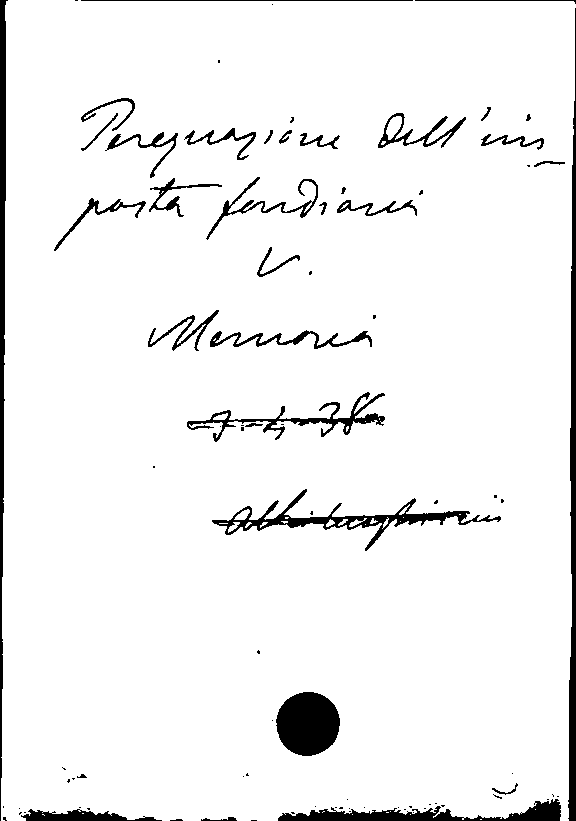 Perequazione dell'im-
posta fondiaria
V.
Memoria
7-4-38